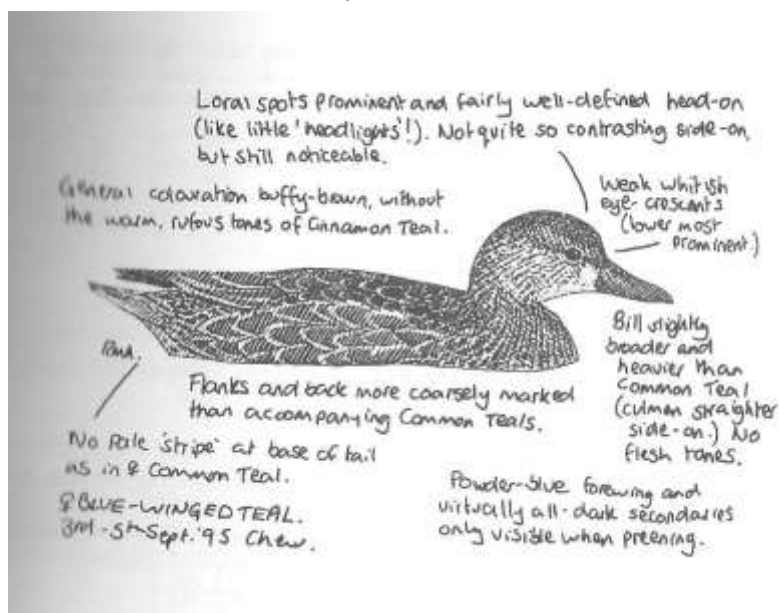 Loral spots prominent and fairly well-defined head-on
(like little 'headlights'!). Not quite so contrasting side-on,
but still noticeable.
General colouration buffy-brown, without
the warm, rufous tones of Cinnamon Teal.
Weak whitish
eye-crescents
(lower most
prominent.)
Bill slightly
broader and
heavier than
Common Teal
(culmen straighter
side-on.) No
flesh tones.
Flanks and back more coarsely marked
than accompanying Common Teals.
No Pale 'stripe' at base of tail
as in ♀ Common Teal.
♀ BLUE-WINGED TEAL.
3rd-5th Sept. '95 Chew.
Powder-blue forewing and
virtually all-dark secondaries
only visible when preening.